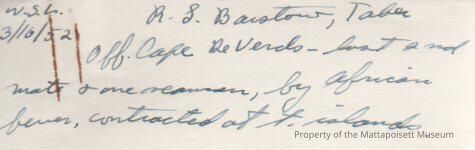 W.S.L. R. L. Barstow, Taber
3/16/52
Off. Cape De Verds - lost 2nd
mate & one seaman, by African
fever, contracted at t. islands
Property of the Mattapoisett Museum